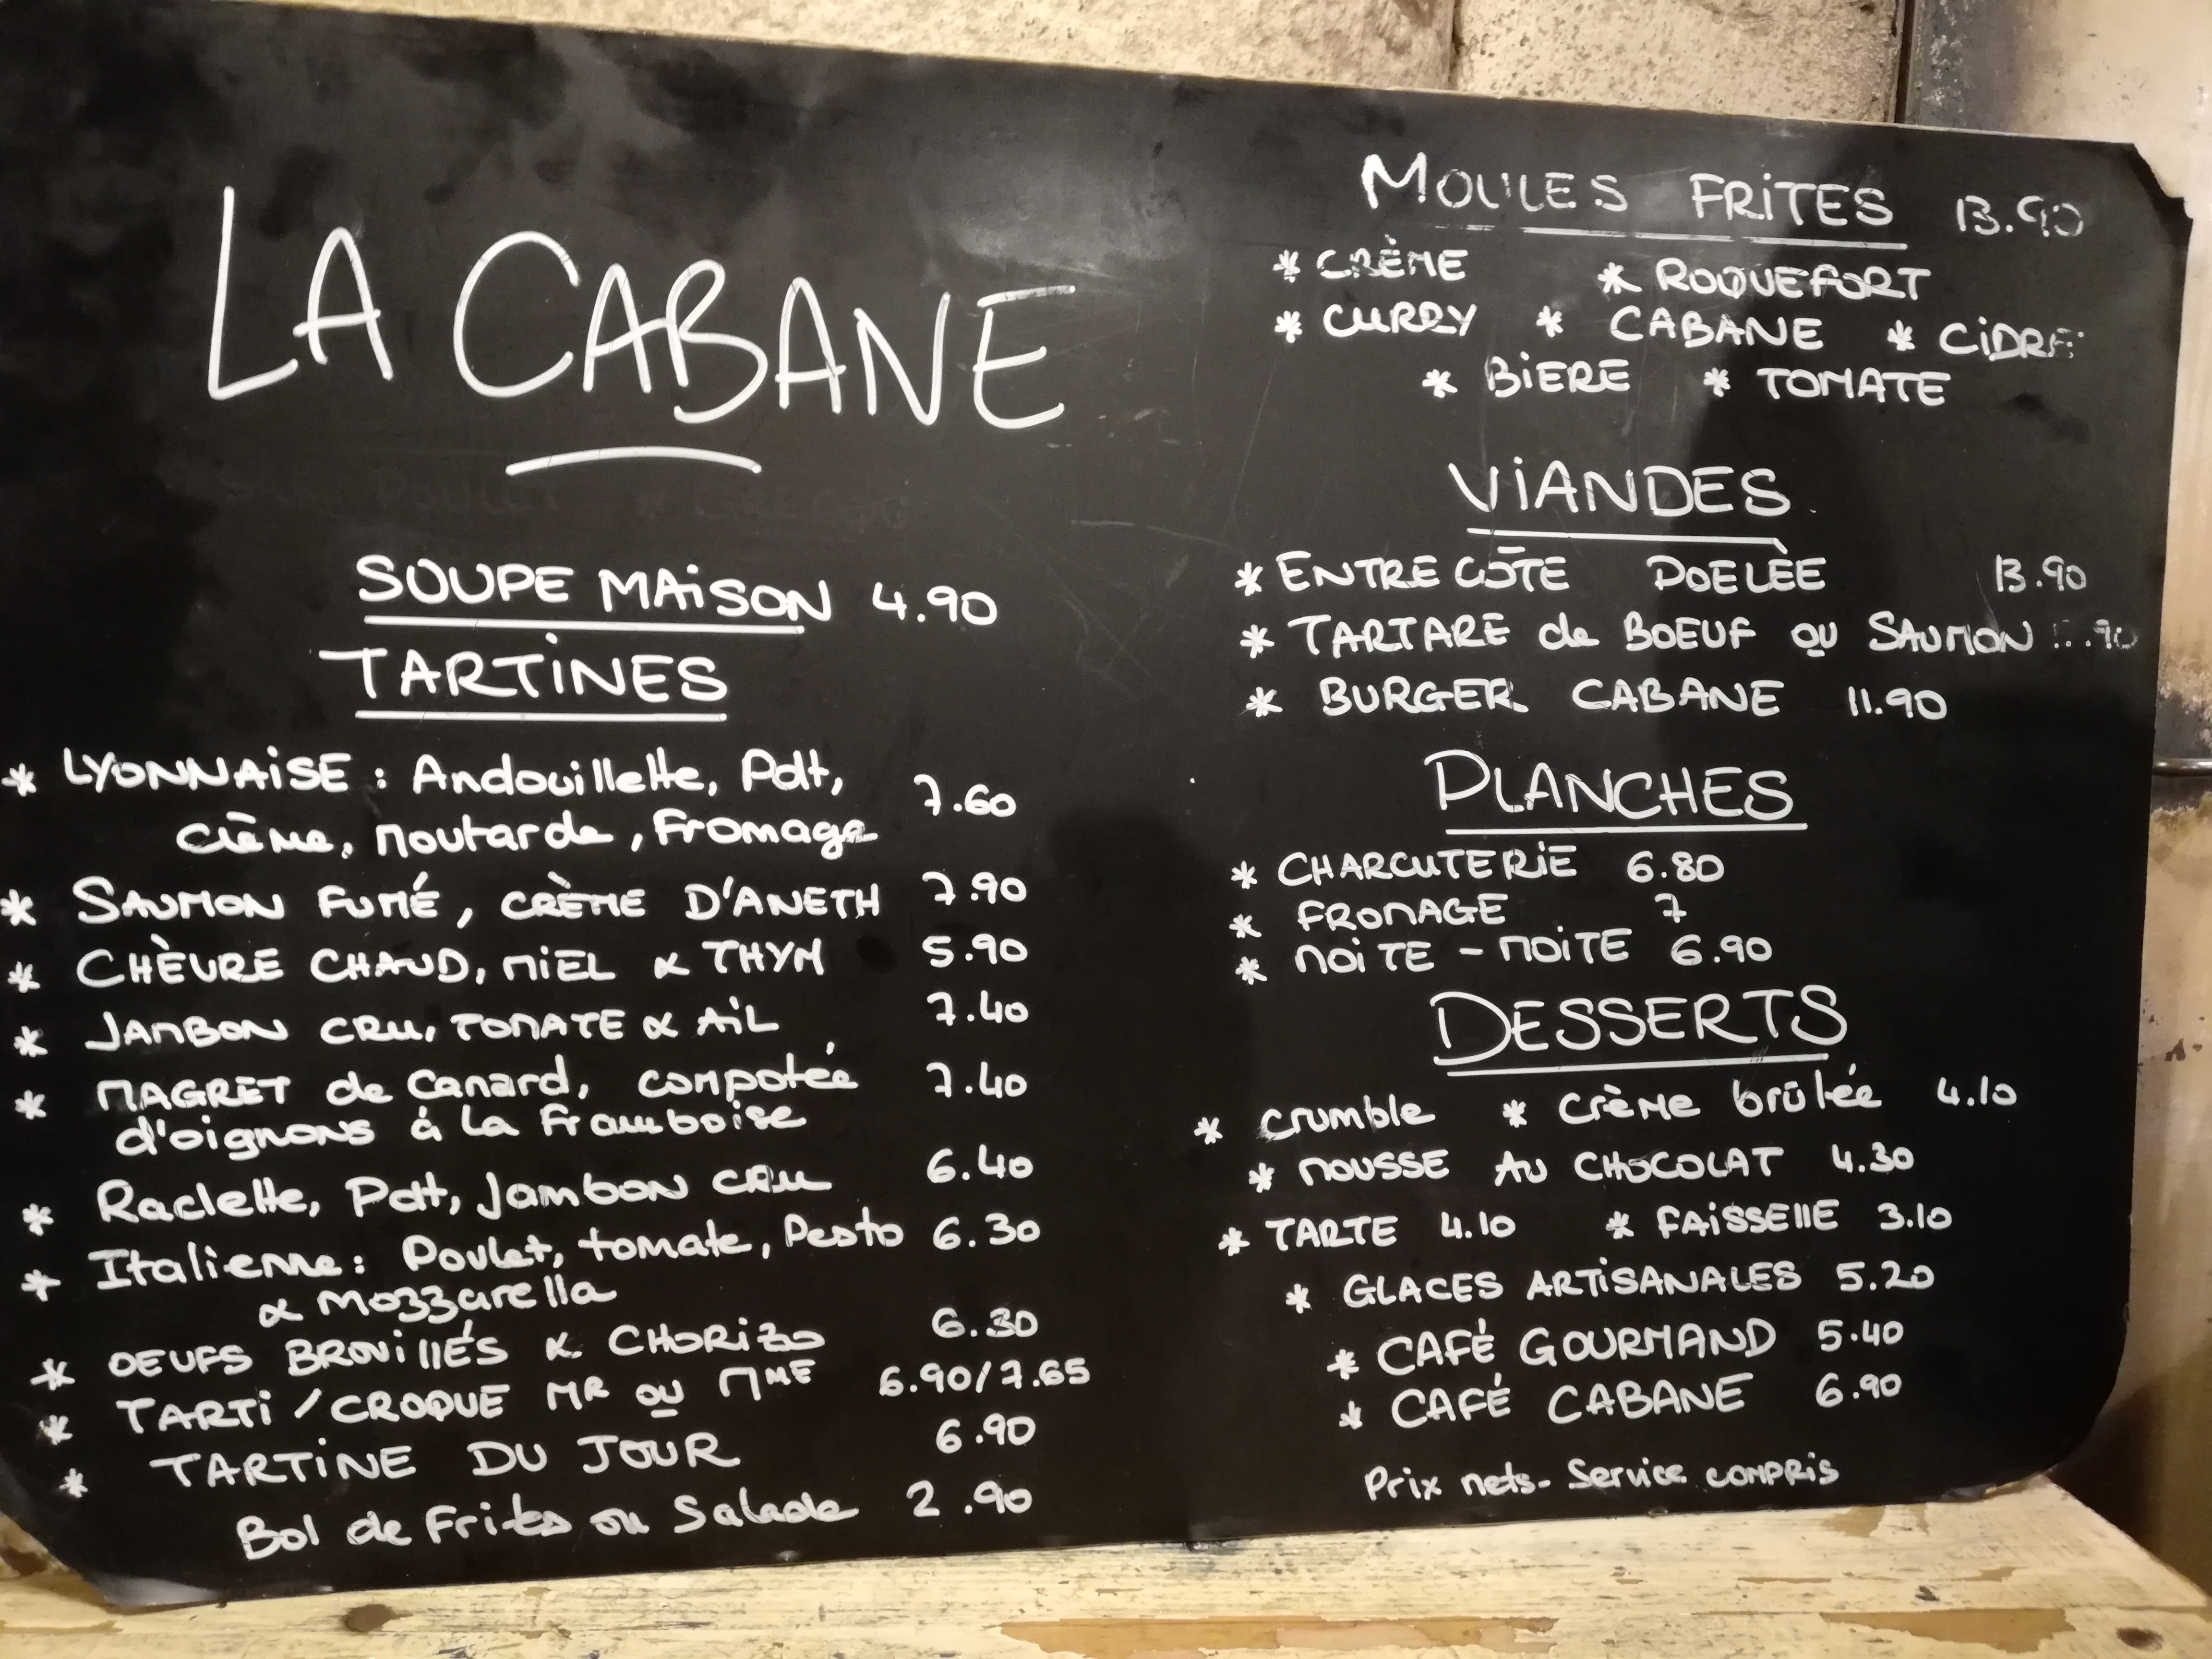 LA CABANE
SOUPE MAiSON 4.90
TARTiNES
* LYONNAiSE : Andouillette, Pdt, 7.60
crème, moutarde, Fromage
* SAUMON FUMÉ, CRÈME D'ANETH 7.90
* CHÈVRE CHAUD, MiEL & THYM 5.90
* JAMBON CRU, TOMATE & AiL 7.40
* MAGRET de Canard, compotée 7.40
d'oignons à la Framboise
* Raclette, Pdt, Jambon CRU 6.40
* Italienne : Poulet, tomate, Pesto 6.30
& Mozzarella
* OEUFS BROUiLLÉS & CHORiZO 6.30
* TARTi / CROQUE MR OU MME 6.90/7.65
* TARTiNE DU JOUR 6.90
Bol de Frites ou Salade 2.90
MOULES FRiTES 13.90
* CRÈME * ROQUEFORT
* CURRY * CABANE * CiDRE
* BiERE * TOMATE
ViANDES
* ENTRECÔTE POELÈE 13.90
* TARTARE de BOEUF OU SAUMON .90
* BURGER CABANE 11.90
PLANCHES
* CHARCUTERiE 6.80
* FROMAGE 7
* MOiTE - MOiTE 6.90
DESSERTS
* crumble * crème brûlée 4.10
* MOUSSE AU CHOCOLAT 4.30
* TARTE 4.10 * FAiSSELLE 3.10
* GLACES ARTiSANALES 5.20
* CAFÉ GOURMAND 5.40
* CAFÉ CABANE 6.90
Prix nets - Service COMPRiS